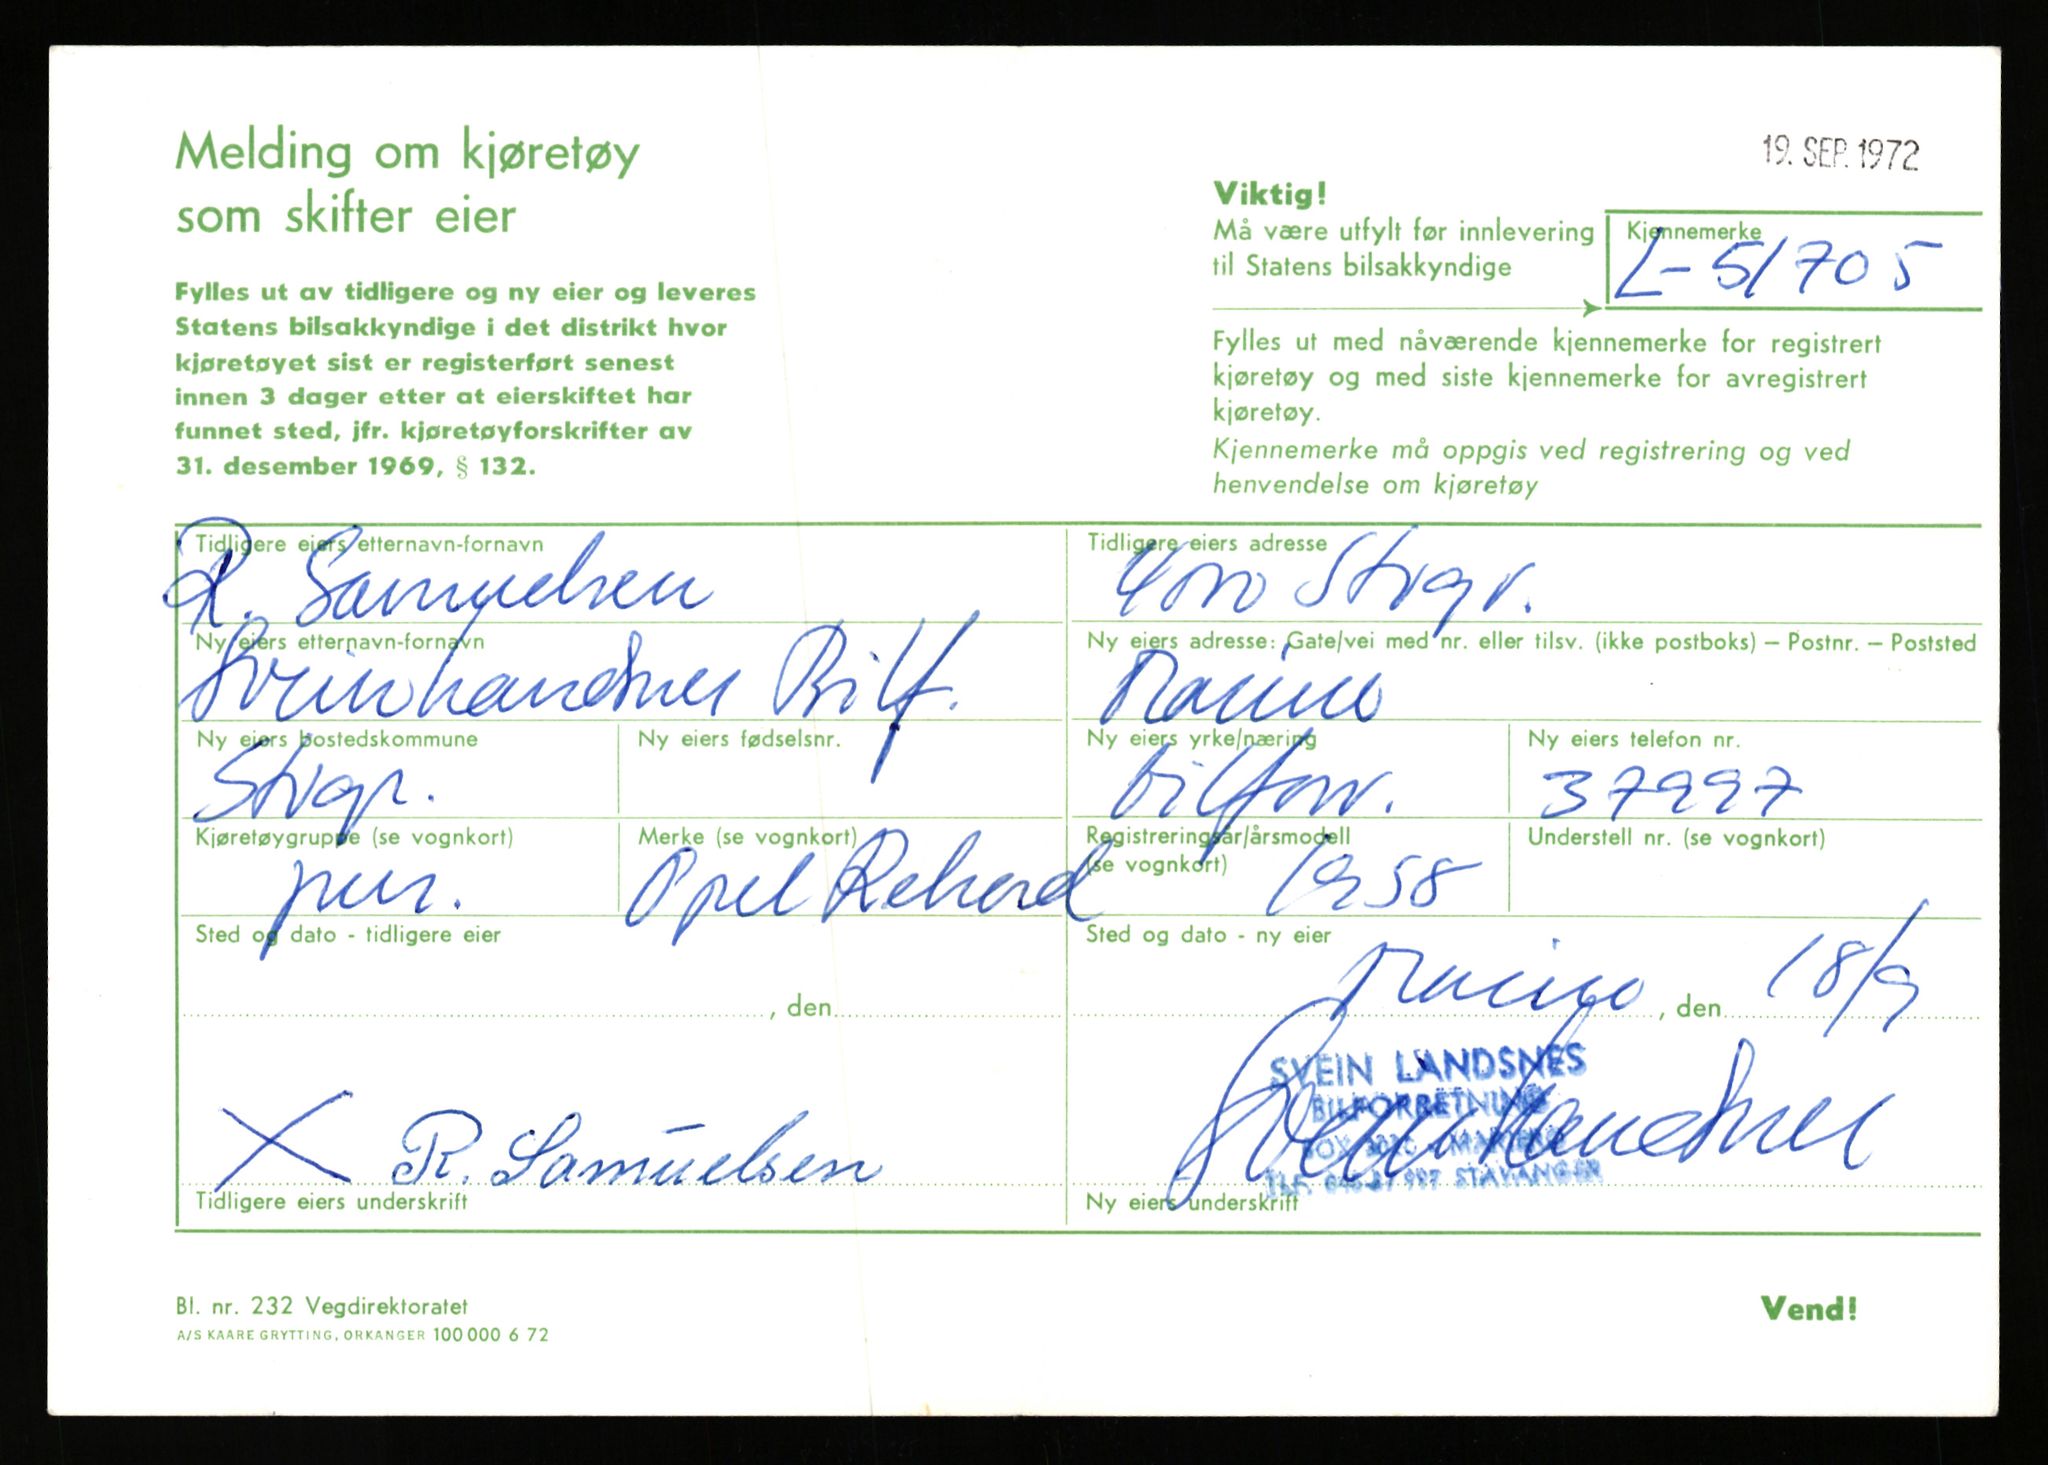 Melding om kjøretøy
som skifter eier
Fylles ut av tidligere og ny eier og leveres
Statens bilsakkyndige i det distrikt hvor
kjøretøyet sist er registerført senest
innen 3 dager etter at eierskiftet har
funnet sted, jfr. kjøretøyforskrifter av
31. desember 1969, § 132.
19. SEP. 1972
Viktig!
Må være utfylt før innlevering
til Statens bilsakkyndige
Kjennemerke
L-51705
Fylles ut med nåværende kjennemerke for registrert
kjøretøy og med siste kjennemerke for avregistrert
kjøretøy.
Kjennemerke må oppgis ved registrering og ved
henvendelse om kjøretøy
Tidligere eiers etternavn-fornavn
R. Samuelsen
Tidligere eiers adresse
Stvgr.
Ny eiers etternavn-fornavn
Svein Landsnes Bilf.
Ny eiers adresse: Gate/vei med nr. eller tilsv. (ikke postboks) – Postnr. – Poststed
Mariero
Ny eiers bostedskommune
Stvgr.
Ny eiers fødselsnr.
Ny eiers yrke/næring
bilforr.
Ny eiers telefon nr.
37997
Kjøretøygruppe (se vognkort)
per.
Merke (se vognkort)
Opel Rekord
Registreringsår/årsmodell
(se vognkort)
1958
Understell nr. (se vognkort)
Sted og dato - tidligere eier
, den
Sted og dato - ny eier
Mariero, den 18/9
SVEIN LANDSNES
BILFORRETNING
BOX - MARIERO
TLF. 997 STAVANGER
Svein Landsnes
X R. Samuelsen
Tidligere eiers underskrift
Ny eiers underskrift
Bl. nr. 232 Vegdirektoratet
A/S KAARE GRYTTING, ORKANGER 100 000 6 72
Vend!